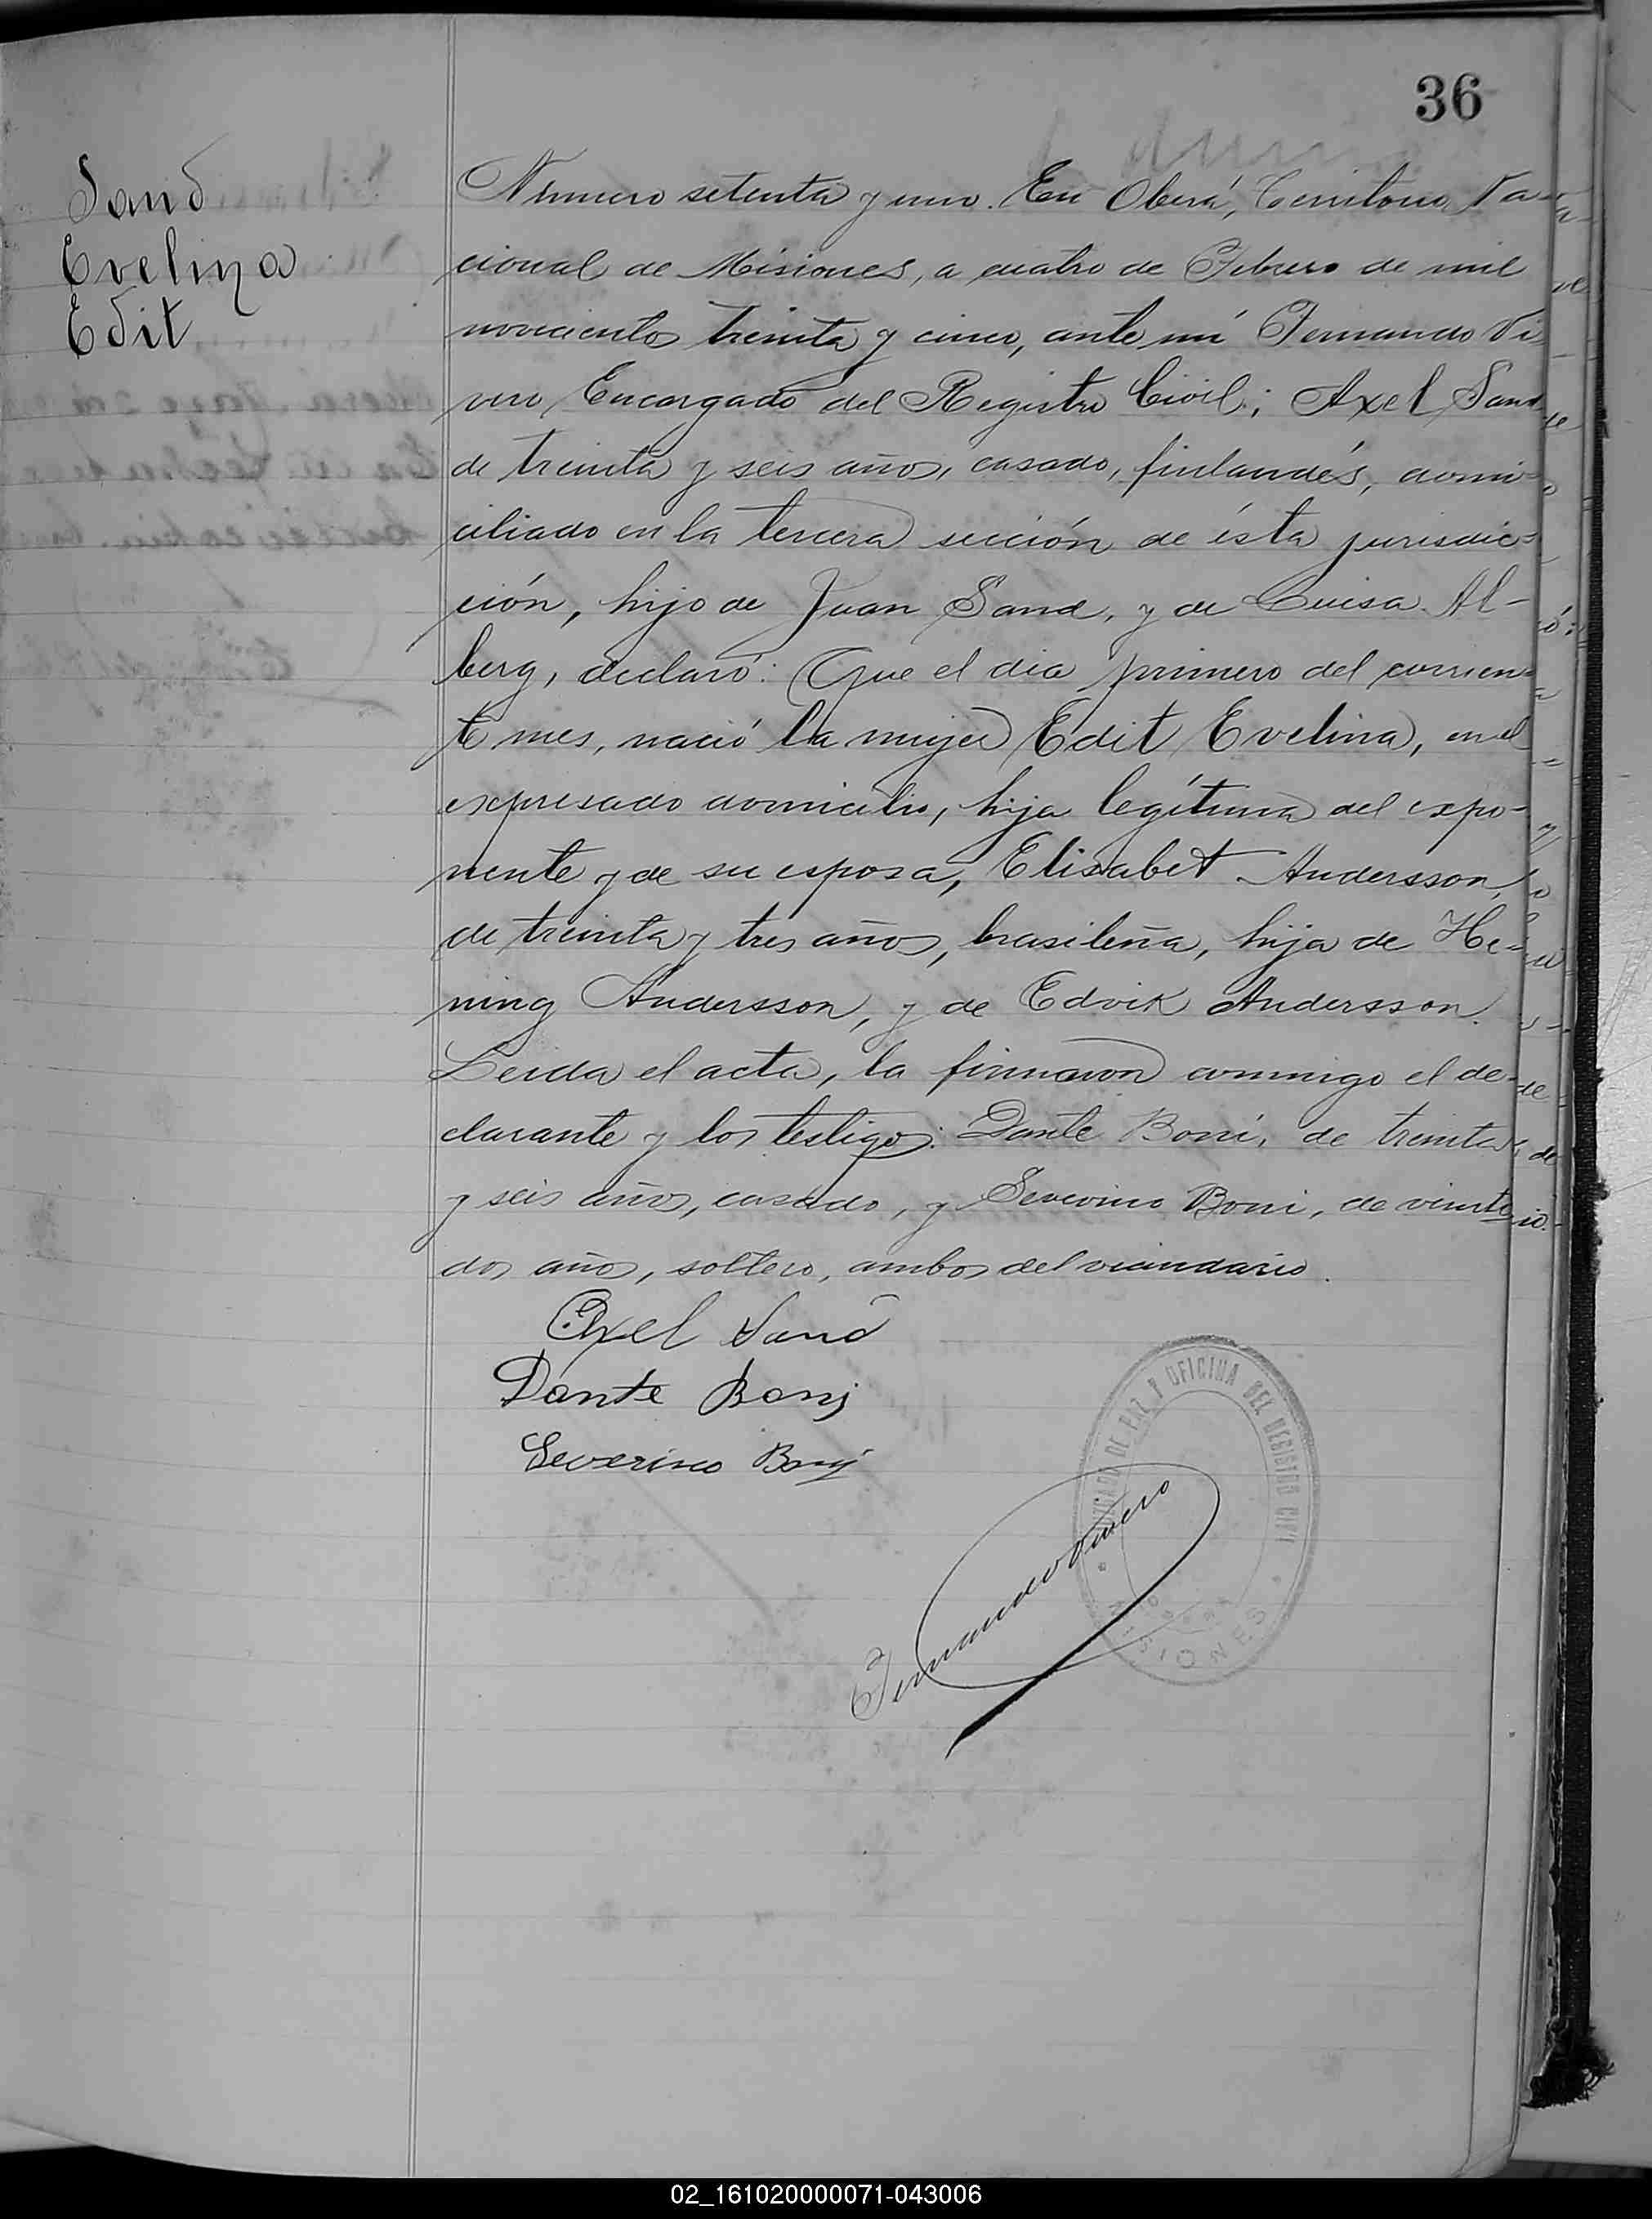 36
Sand
Evelina
Edit
Número setenta y uno. En Oberá, Territorio Na-
cional de Misiones, a cuatro de Febrero de mil
novecientos treinta y cinco, ante mí Fernando Vi
vero Encargado del Registro Civil; Axel Sand
de treinta y seis años, casado, finlandés, domi-
ciliado en la tercera sección de ésta jurisdic-
ción, hijo de Juan Sand, y de Luisa Al-
berg, declaró: Que el dia primero del corrien-
te mes, nació la mujer Edit Evelina, en el
expresado domicilio, hija legítima del expo-
nente y de su esposa, Elisabet Andersson,
de treinta y tres años, brasileña, hija de He-
ning Andersson, y de Edvik Andersson.
Leida el acta, la firmaron conmigo el de-
clarante y los testigos: Dante Boni, de treinta
y seis años, casado, y Severino Boni, de veinte
dos años, soltero, ambos del vecindario.
Axel Sand
Dante Boni
Severino Boni
Fernando Vivero
JUZGADO DE PAZ Y OFICINA DEL REGISTRO CIVIL
OBERA
MISIONES
02_161020000071-043006